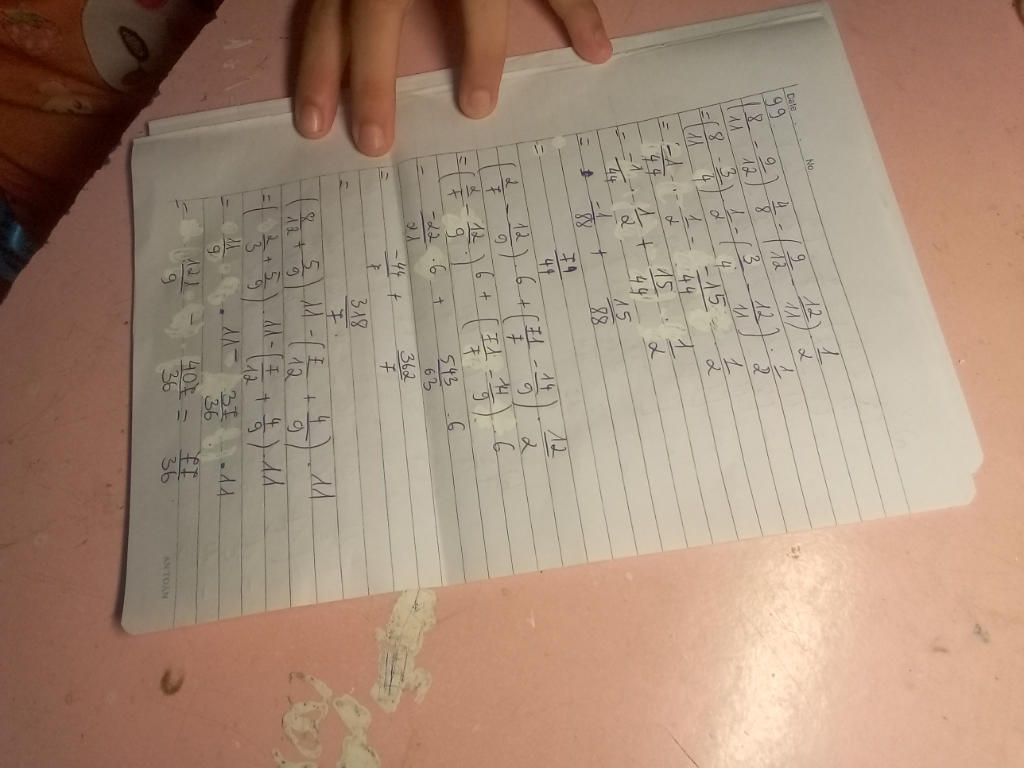 Date No
99
(18/11 - 9/12) 4/8 - (9/12 - 12/11) 1/2
= (18/11 - 3/4) 1/2 - (3/4 - 12/11) . 1/2
= 1/44 . 1/2 - -15/44 . 1/2
= 1/44 . 1/2 + 15/44 . 1/2
= 1/88 + 15/88
= 79/44
(2/7 - 12/9) 6 + (71/7 - 14/9) . 12/2
= (2/7 - 12/9) 6 + (71/7 - 14/9) . 6
= -22/21 . 6 + 543/63 . 6
= -44/7 + 362/7
= 318/7
(8/12 + 5/9) . 11 - (7/12 + 4/9) . 11
= (2/3 + 5/9) . 11 - (7/12 + 4/9) . 11
= 11/9 . 11 - 37/36 . 11
= 121/9 - 407/36 = 77/36
ANTOAN